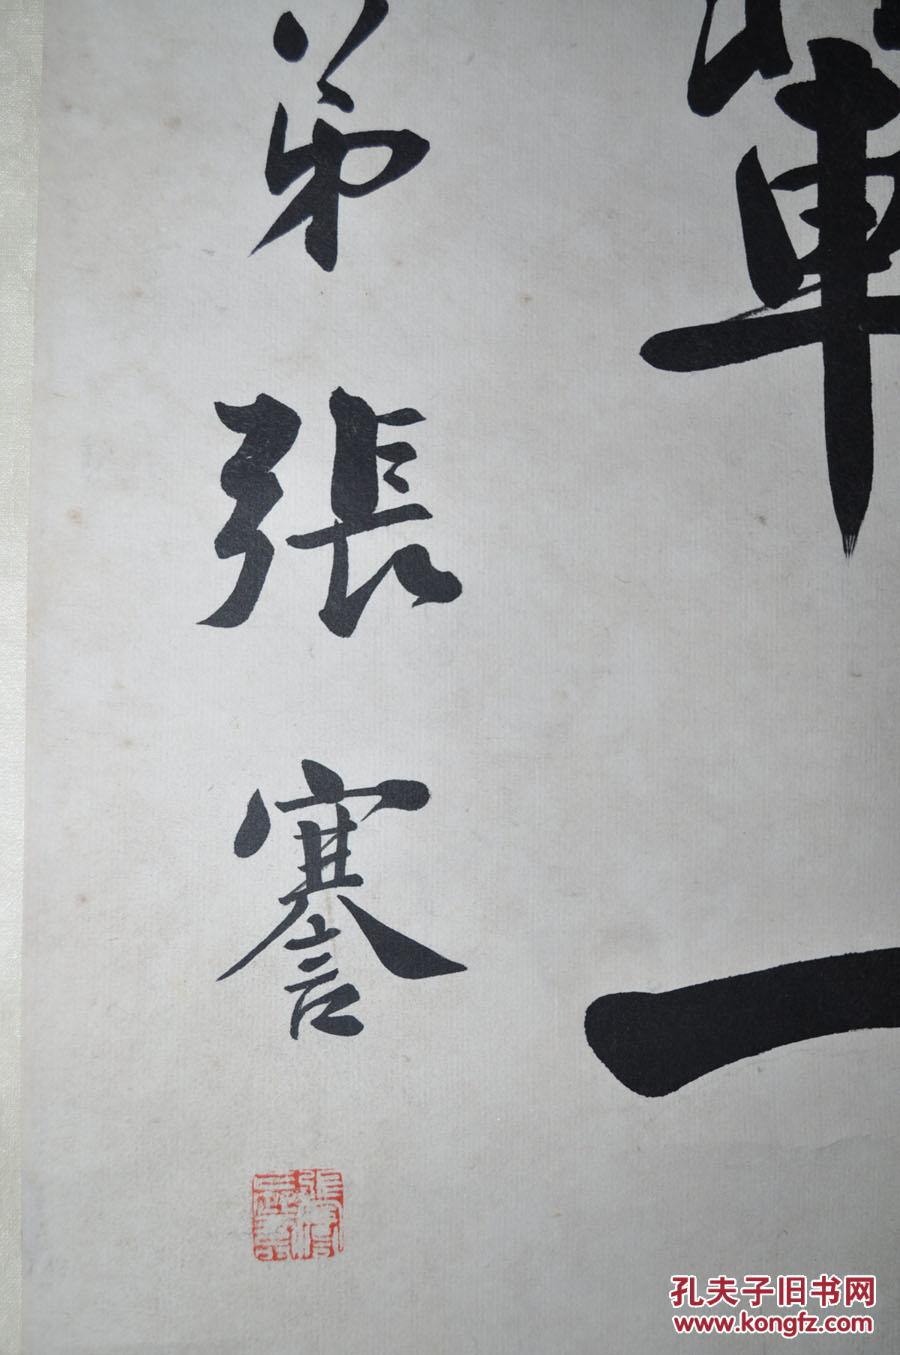 軍一
弟張謇
孔夫子旧书网
www.kongfz.com